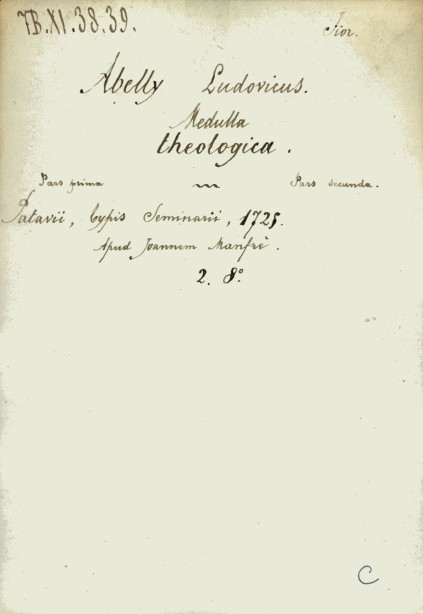 VB.XI.38.39.
Fior.
Abelly Ludovicus.
Medulla
theologica.
Pars prima ~ Pars secunda.
Patavii, typis Seminarii, 1725.
Apud Joannem Manfrè.
2. 8°.
C